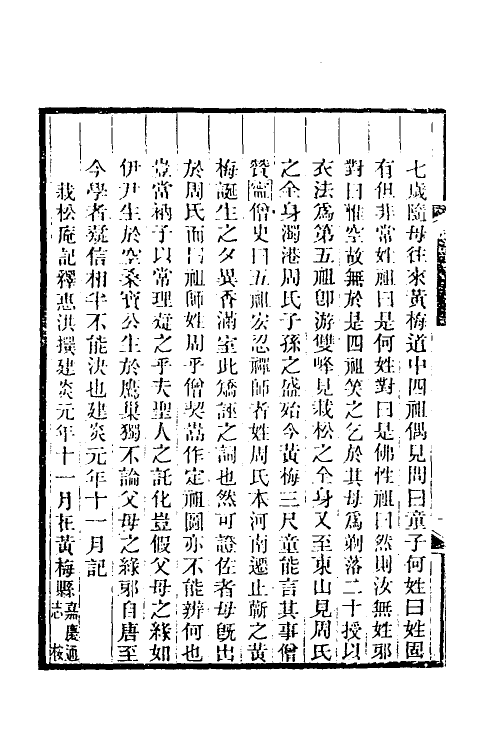 七歲隨母往來黃梅道中四祖偶見問曰童子何姓曰姓固
有但非常姓祖曰是何姓對曰是佛性祖曰然則汝無姓邪
對曰惟空故無於是四祖笑之乞於其母爲剃落二十授以
衣法爲第五祖卽游雙峰見栽松之全身又至東山見周氏
之全身濁港周氏子孫之盛始今黃梅三尺童能言其事僧
贊寧僧史曰五祖宏忍禪師者姓周氏本河南遷止蘄之黃
梅誕生之夕異香滿室此矯誣之詞也然可證佐者母旣出
於周氏而曰祖師姓周乎僧契嵩作定祖圖亦不能辨何也
豈當衲子以常理疑之乎夫聖人之託化豈假父母之緣如
伊尹生於空桑寶公生於鷹巢獨不論父母之緣邪自唐至
今學者疑信相半不能決也建炎元年十一月記
栽松庵記釋惠洪撰建炎元年十一月在黃梅縣嘉慶通志 按